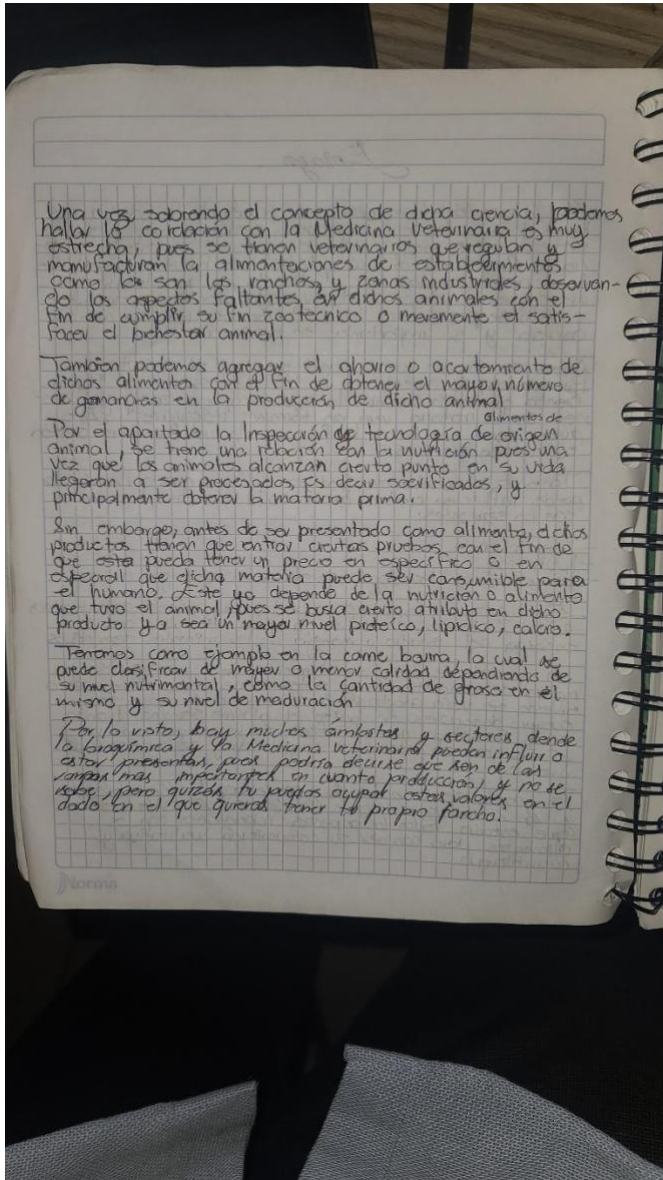 Una vez sobrendo el concepto de dicha ciencia, podemos
hallar la corelación con la Medicina Veterinaria es muy
estrecha, pues se tienen veterinarios que regulan y
manufacturan la alimentaciones de establecimientos
como los son los ranchos, y zonas industriales, observan-
do los aspectos faltantes, en dichos animales con el
fin de cumplir su fin zootecnico o meramente el satis-
facer el bienestar animal.
Tambien podemos agregar el ahorro o acortamiento de
dichos alimentos con el fin de obtener el mayor número
de ganancias en la producción de dicho animal
alimentos de
Por el apartado la Inspección de tecnología de origen
animal, se tiene una relación con la nutrición pues una
vez que los animales alcanzan cierto punto en su vida
llegaran a ser procesados, Es decir sacrificados, y
principalmente obtener la materia prima.
Sin embargo, antes de ser presentado como alimento, dichos
productos tienen que entrar ciertas pruebas con el fin de
que esta pueda tener un precio en específico o en
que dicha materia puede ser consumible para
el humano. Este ya depende de la nutrición o alimento
que tuvo el animal, pues se busca cierto atributo en dicho
producto ya sea un mayor nivel proteíco, lipidico, calcio.
Tenemos como ejemplo en la carne bovina, la cual se
puede clasificar de mayor o menor calidad dependiendo de
su nivel nutrimental, como la cantidad de grasa en el
mismo y su nivel de maduración
Por lo visto, hay muchos ámbitos y sectores donde
la bioquímica y la Medicina Veterinaria pueden influir o
estar presentes, pues podría decirse que son de las
más importantes en cuanto producción, y no se
sabe, pero quizás tu puedas ocupar estos valores en el
dado en el que quieras tener tu propio rancho.
Norma